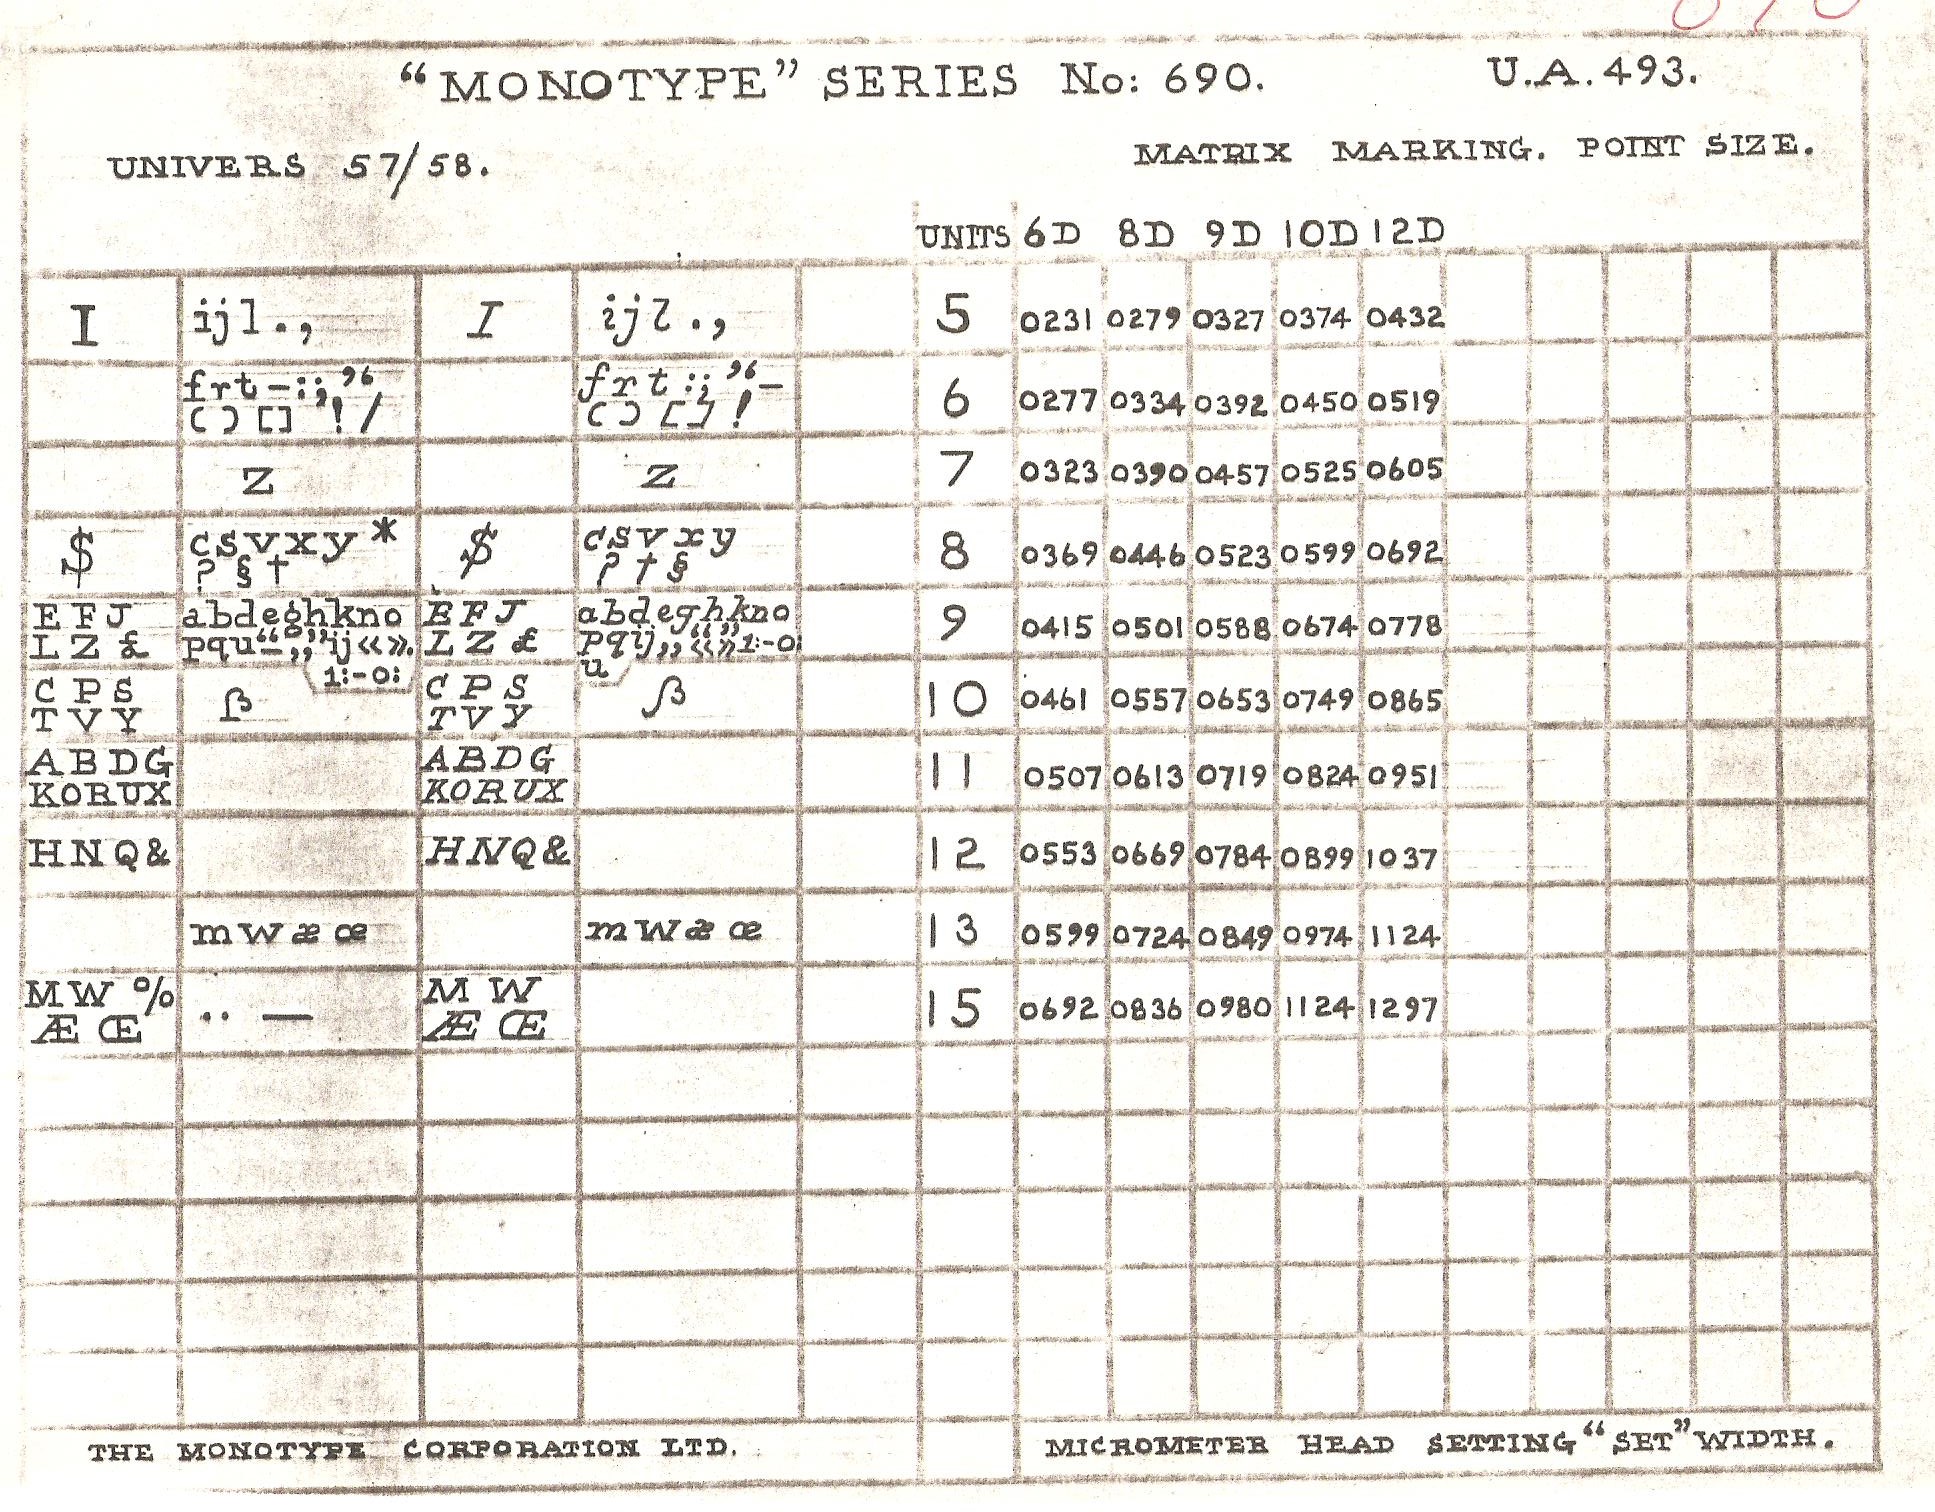 “MONOTYPE” SERIES No: 690. U.A.493.
UNIVERS 57/58. MATRIX MARKING. POINT SIZE.
UNITS 6D 8D 9D 10D 12D
I ijl., I ijl., 5 0231 0279 0327 0374 0432
frt-:;’‘ frt:;’‘-
()[]!/ ()[]! 6 0277 0334 0392 0450 0519
z z 7 0323 0390 0457 0525 0605
$ csvxy* $ csvxy 8 0369 0446 0523 0599 0692
?§† ?†§
EFJ abdeghkno EFJ abdeghkno 9 0415 0501 0588 0674 0778
LZ£ pqu“ „”ij«». LZ£ pqij„“”«»1:-0:
1:-0: u
CPS ß CPS ß 10 0461 0557 0653 0749 0865
TVY TVY
ABDG ABDG 11 0507 0613 0719 0824 0951
KORUX KORUX
HNQ& HNQ& 12 0553 0669 0784 0899 1037
mwæœ mwæœ 13 0599 0724 0849 0974 1124
MW% ..— MW 15 0692 0836 0980 1124 1297
ÆŒ ÆŒ
THE MONOTYPE CORPORATION LTD. MICROMETER HEAD SETTING “SET” WIDTH.